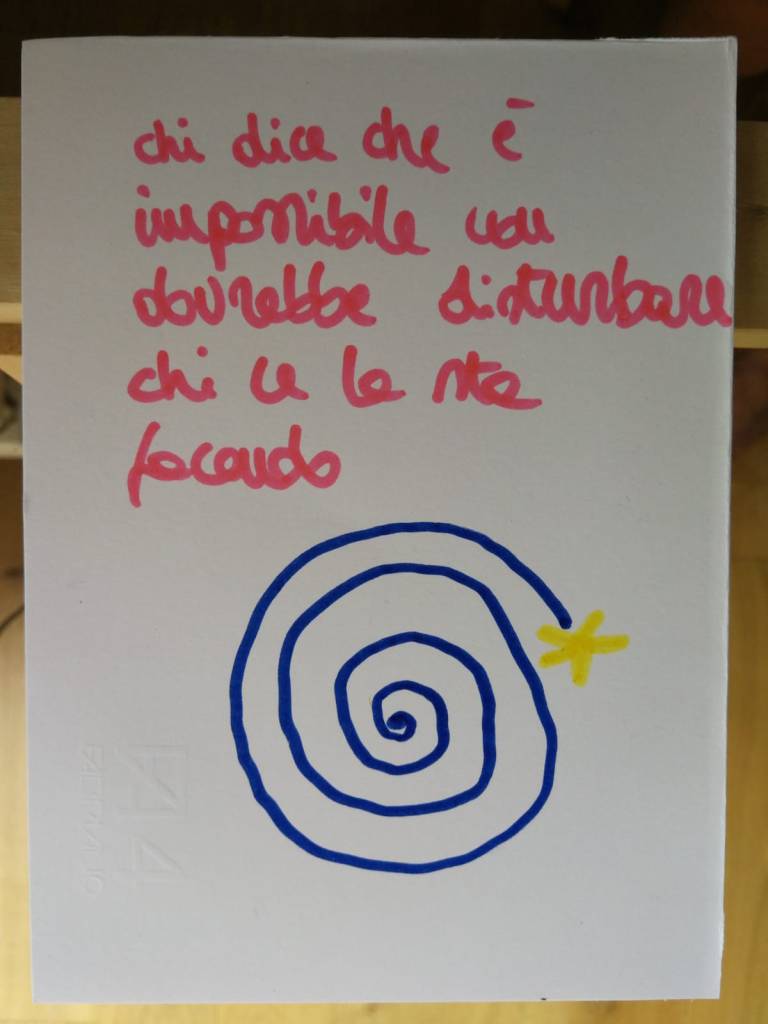 chi dice che è
impossibile non
dovrebbe disturbare
chi ce la sta
facendo
FABRIANO
F4